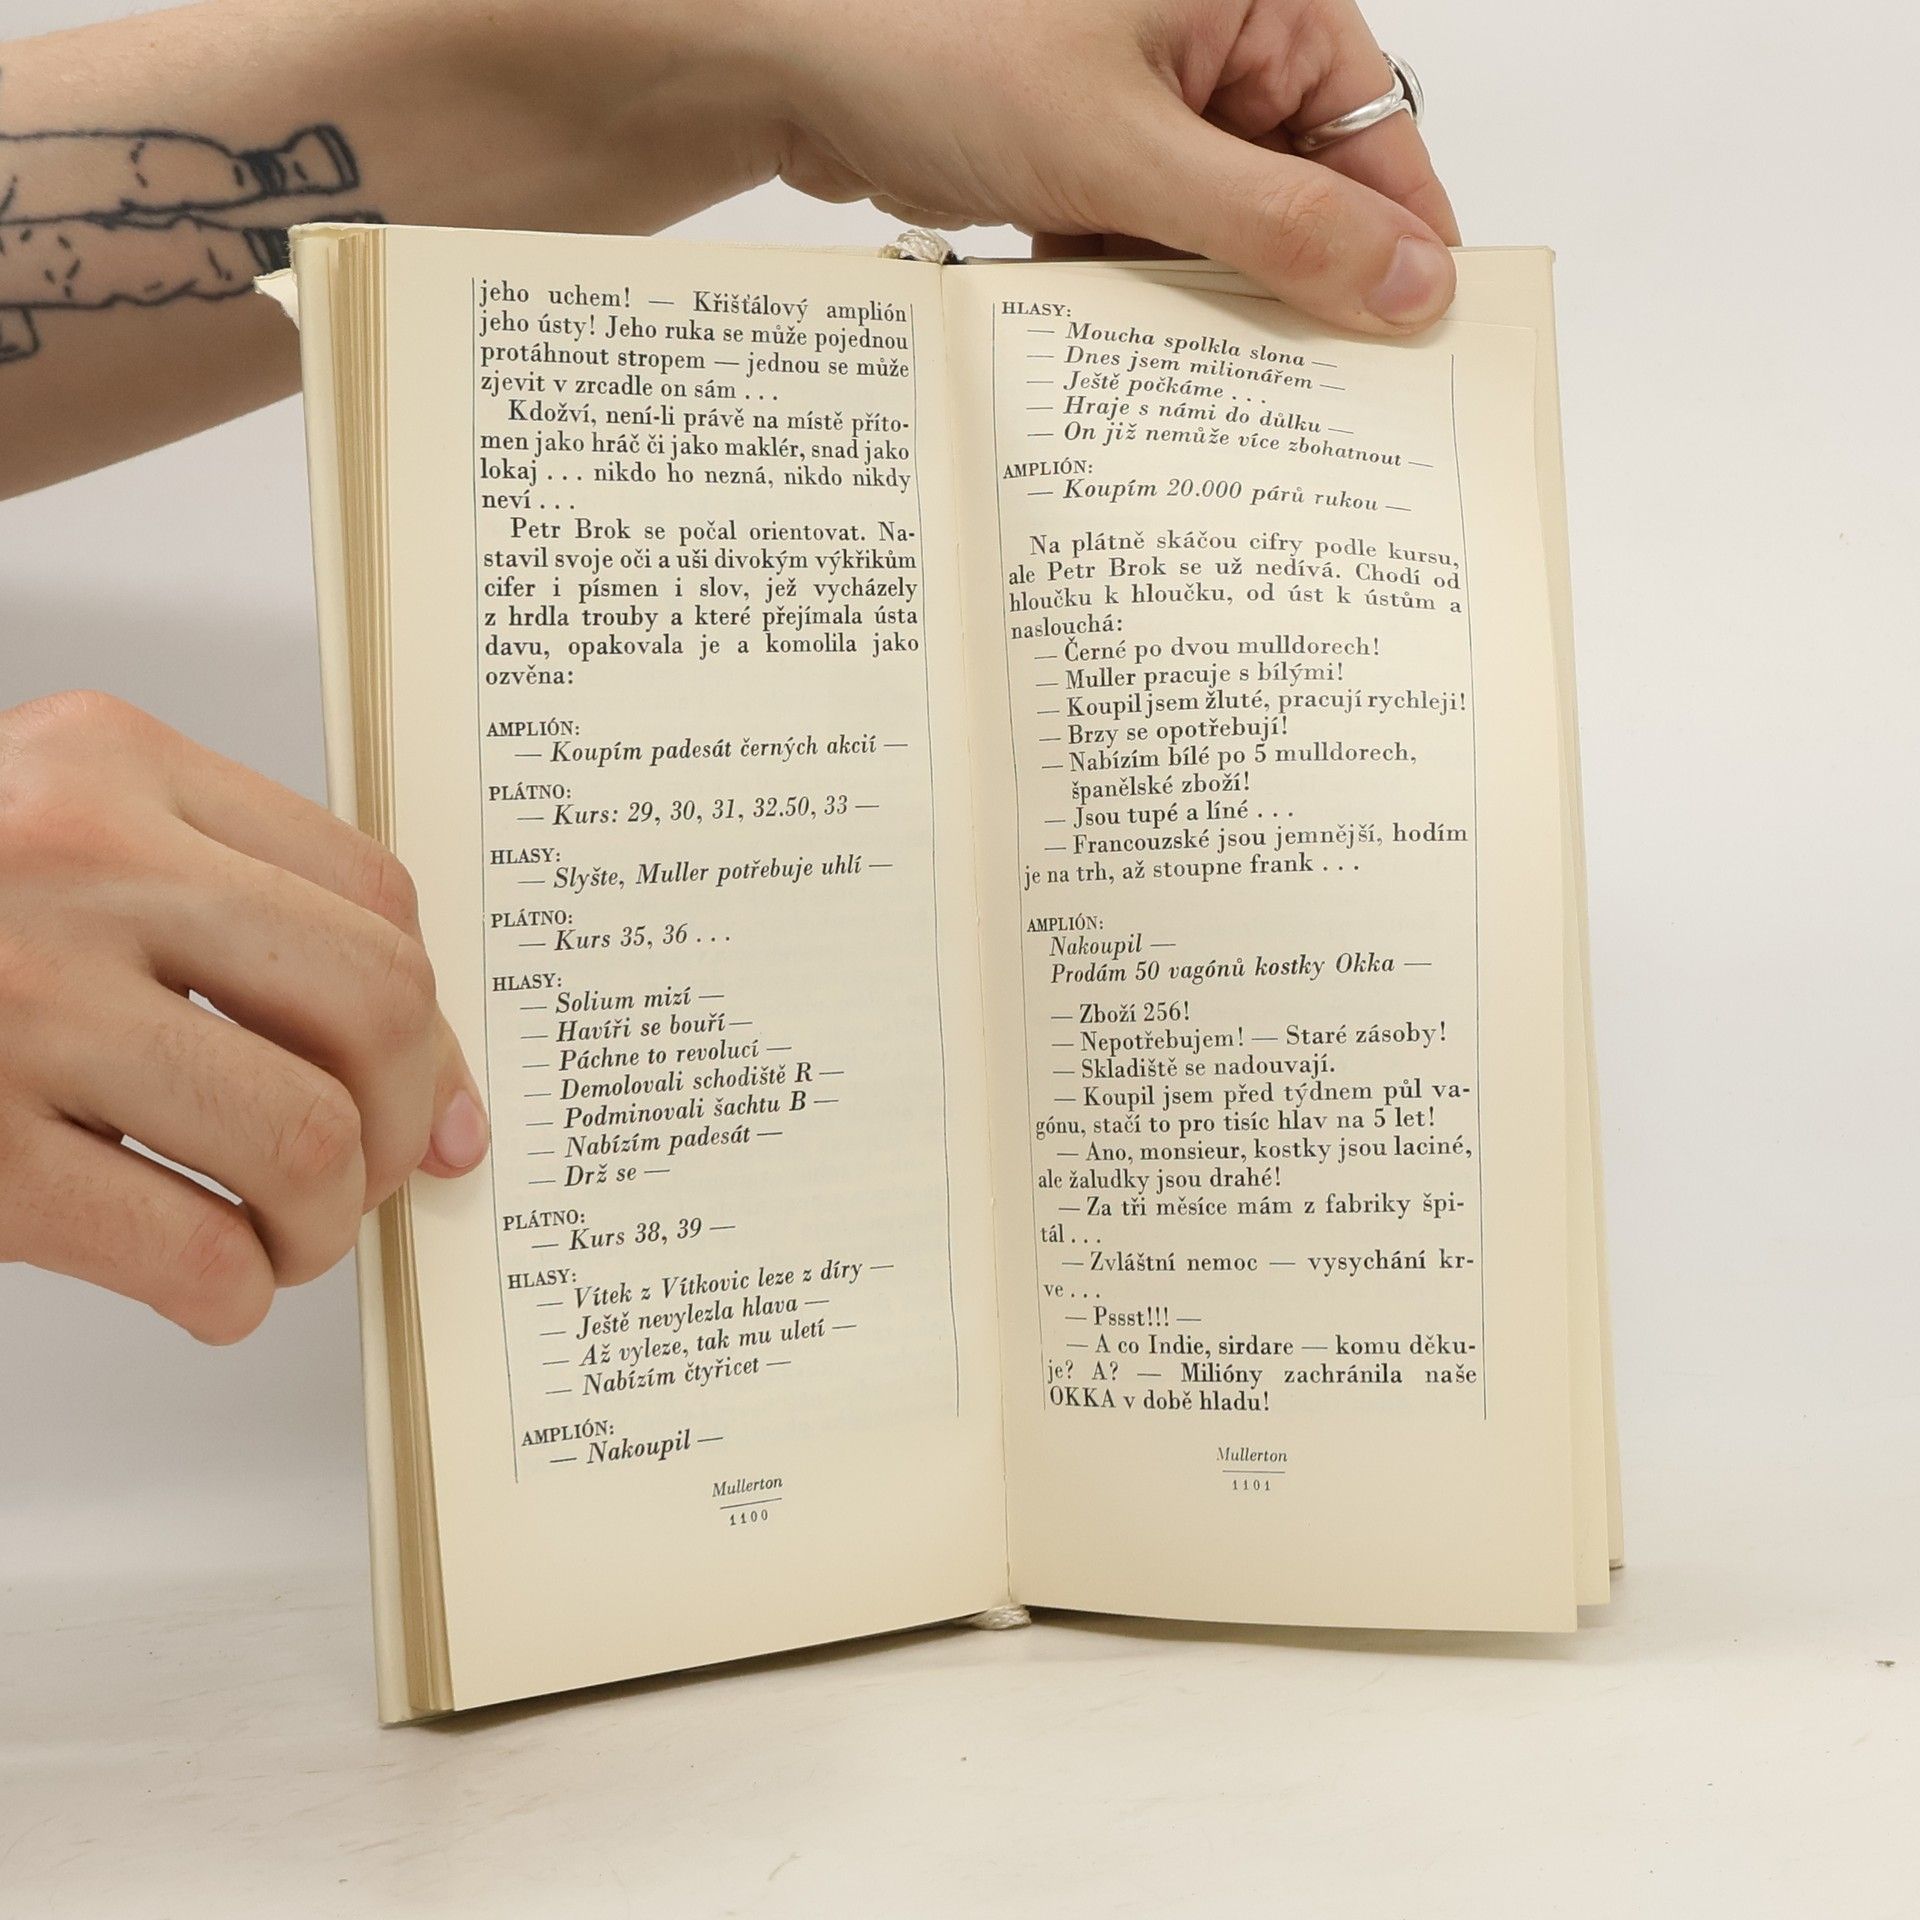 jeho uchem! — Křišťálový amplión
jeho ústy! Jeho ruka se může pojednou
protáhnout stropem — jednou se může
zjevit v zrcadle on sám . . .
Kdožví, není-li právě na místě příto-
men jako hráč či jako maklér, snad jako
lokaj . . . nikdo ho nezná, nikdo nikdy
neví . . .
Petr Brok se počal orientovat. Na-
stavil svoje oči a uši divokým výkřikům
cifer i písmen i slov, jež vycházely
z hrdla trouby a které přejímala ústa
davu, opakovala je a komolila jako
ozvěna:
AMPLIÓN:
— Koupím padesát černých akcií —
PLÁTNO:
— Kurs: 29, 30, 31, 32.50, 33 —
HLASY:
— Slyšte, Muller potřebuje uhlí —
PLÁTNO:
— Kurs 35, 36 . . .
HLASY:
— Solium mizí —
— Havíři se bouří—
— Páchne to revolucí —
— Demolovali schodiště R —
— Podminovali šachtu B —
— Nabízím padesát —
— Drž se —
PLÁTNO:
— Kurs 38, 39 —
HLASY:
— Vítek z Vítkovic leze z díry —
— Ještě nevylezla hlava —
— Až vyleze, tak mu uletí —
— Nabízím čtyřicet —
AMPLIÓN:
— Nakoupil —
Mullerton
1100
HLASY:
— Moucha spolkla slona —
— Dnes jsem milionářem —
— Ještě počkáme . . .
— Hraje s námi do důlku —
— On již nemůže více zbohatnout —
AMPLIÓN:
— Koupím 20.000 párů rukou —
Na plátně skáčou cifry podle kursu,
ale Petr Brok se už nedívá. Chodí od
hloučku k hloučku, od úst k ústům a
naslouchá:
— Černé po dvou mulldorech!
— Muller pracuje s bílými!
— Koupil jsem žluté, pracují rychleji!
— Brzy se opotřebují!
— Nabízím bílé po 5 mulldorech,
španělské zboží!
— Jsou tupé a líné . . .
— Francouzské jsou jemnější, hodím
je na trh, až stoupne frank . . .
AMPLIÓN:
Nakoupil —
Prodám 50 vagónů kostky Okka —
— Zboží 256!
— Nepotřebujem! — Staré zásoby!
— Skladiště se nadouvají.
— Koupil jsem před týdnem půl va-
gónu, stačí to pro tisíc hlav na 5 let!
— Ano, monsieur, kostky jsou laciné,
ale žaludky jsou drahé!
— Za tři měsíce mám z fabriky špi-
tál . . .
— Zvláštní nemoc — vysychání kr-
ve . . .
— Pssst!!! —
— A co Indie, sirdare — komu děku-
je? A? — Milióny zachránila naše
OKKA v době hladu!
Mullerton
1101